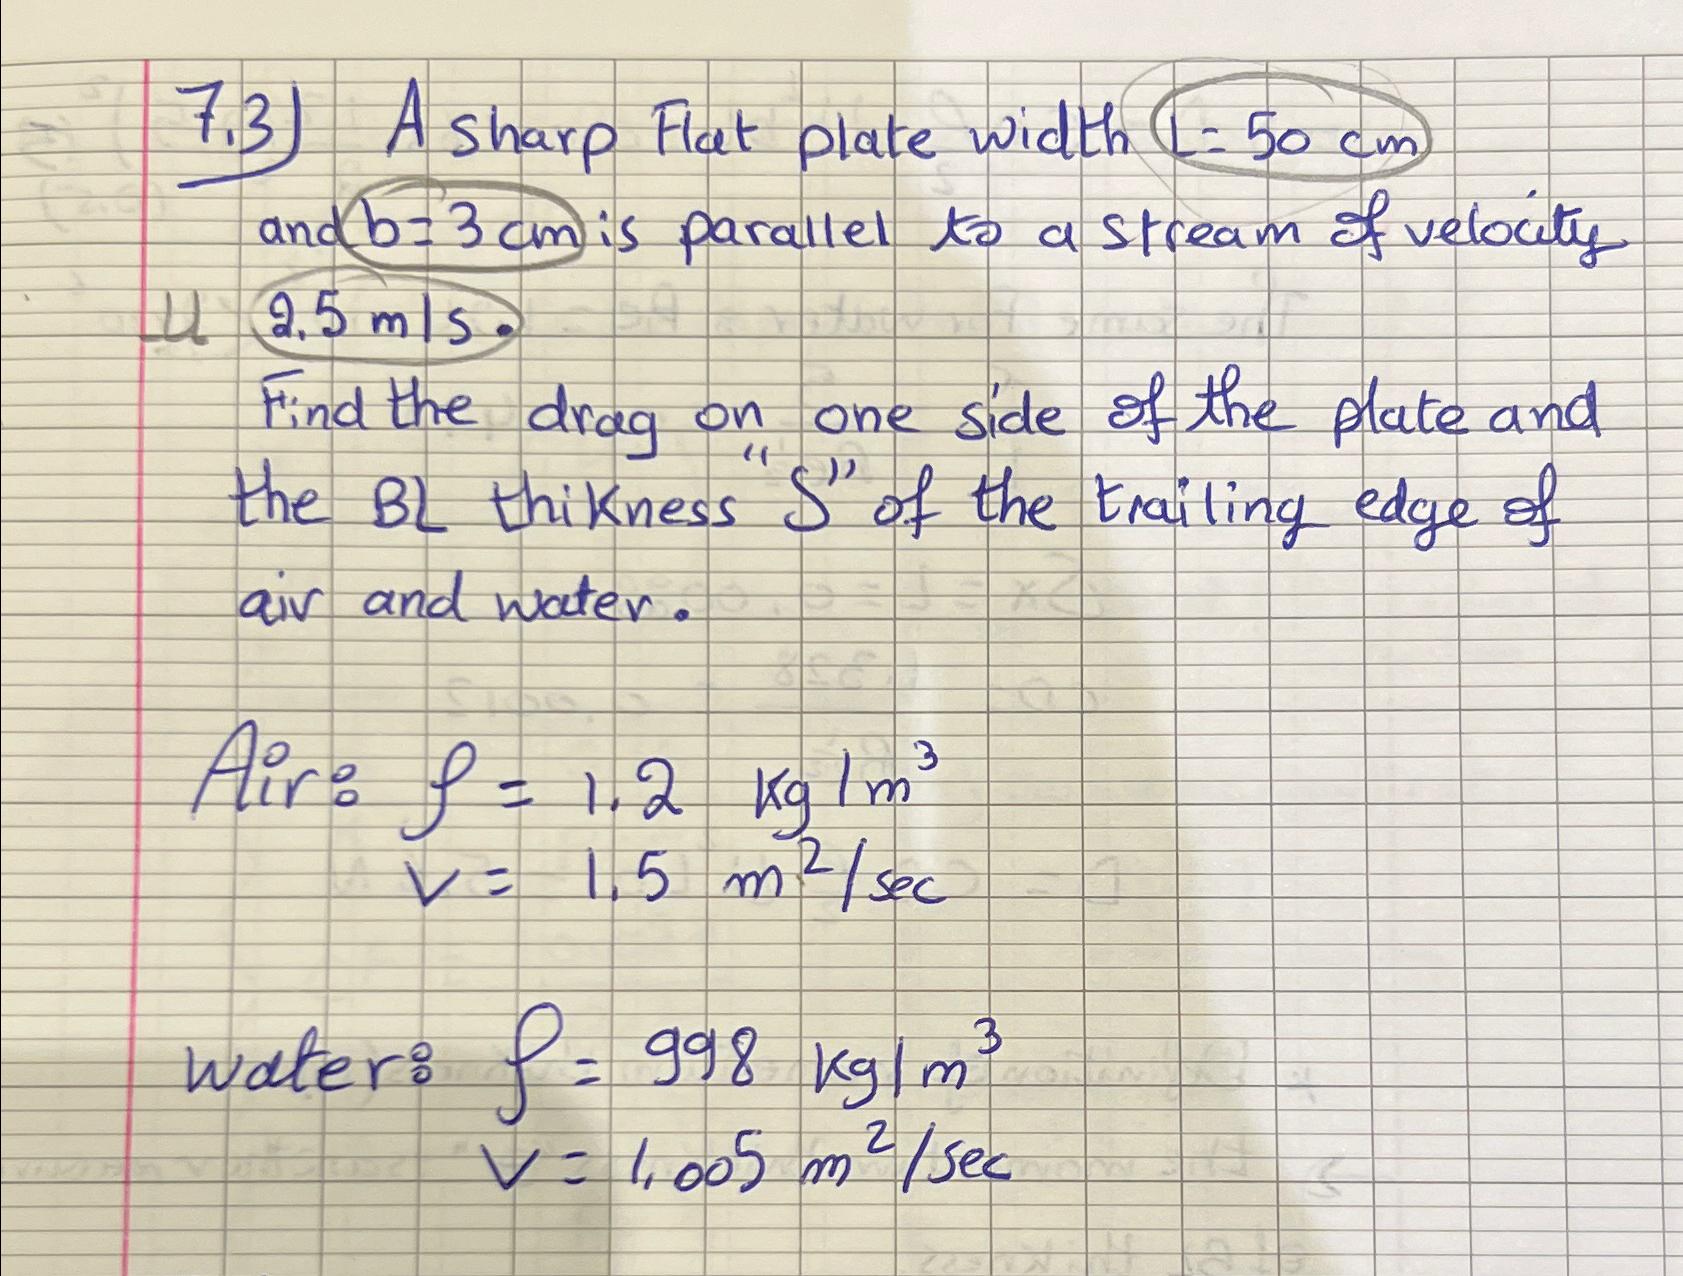 7.3) A sharp Flat plate width L= 50 cm
and b= 3 cm is parallel to a stream of velocity
U 2.5 m/s.
Find the drag on one side of the plate and
the BL thikness "δ" of the trailing edge of
air and water.
Air: ρ = 1.2 kg/m³
ν = 1.5 m²/sec
water: ρ = 998 kg/m³
ν = 1,005 m²/sec